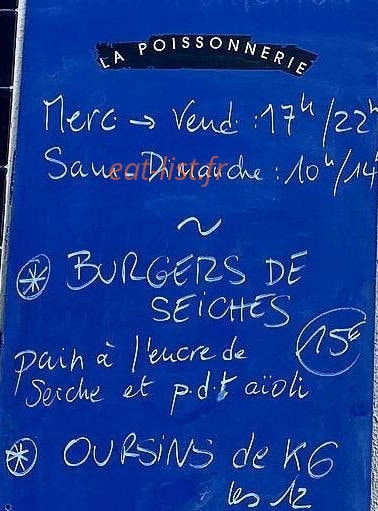 LA POISSONNERIE
Merc → Vend : 17h/22h
Sam-Dimanche : 10h/14h
eat-list.fr
~
BURGERS DE
SEICHES
15€
pain à l'encre de
Seiche et p.d.t aïoli
OURSINS de KG
les 12